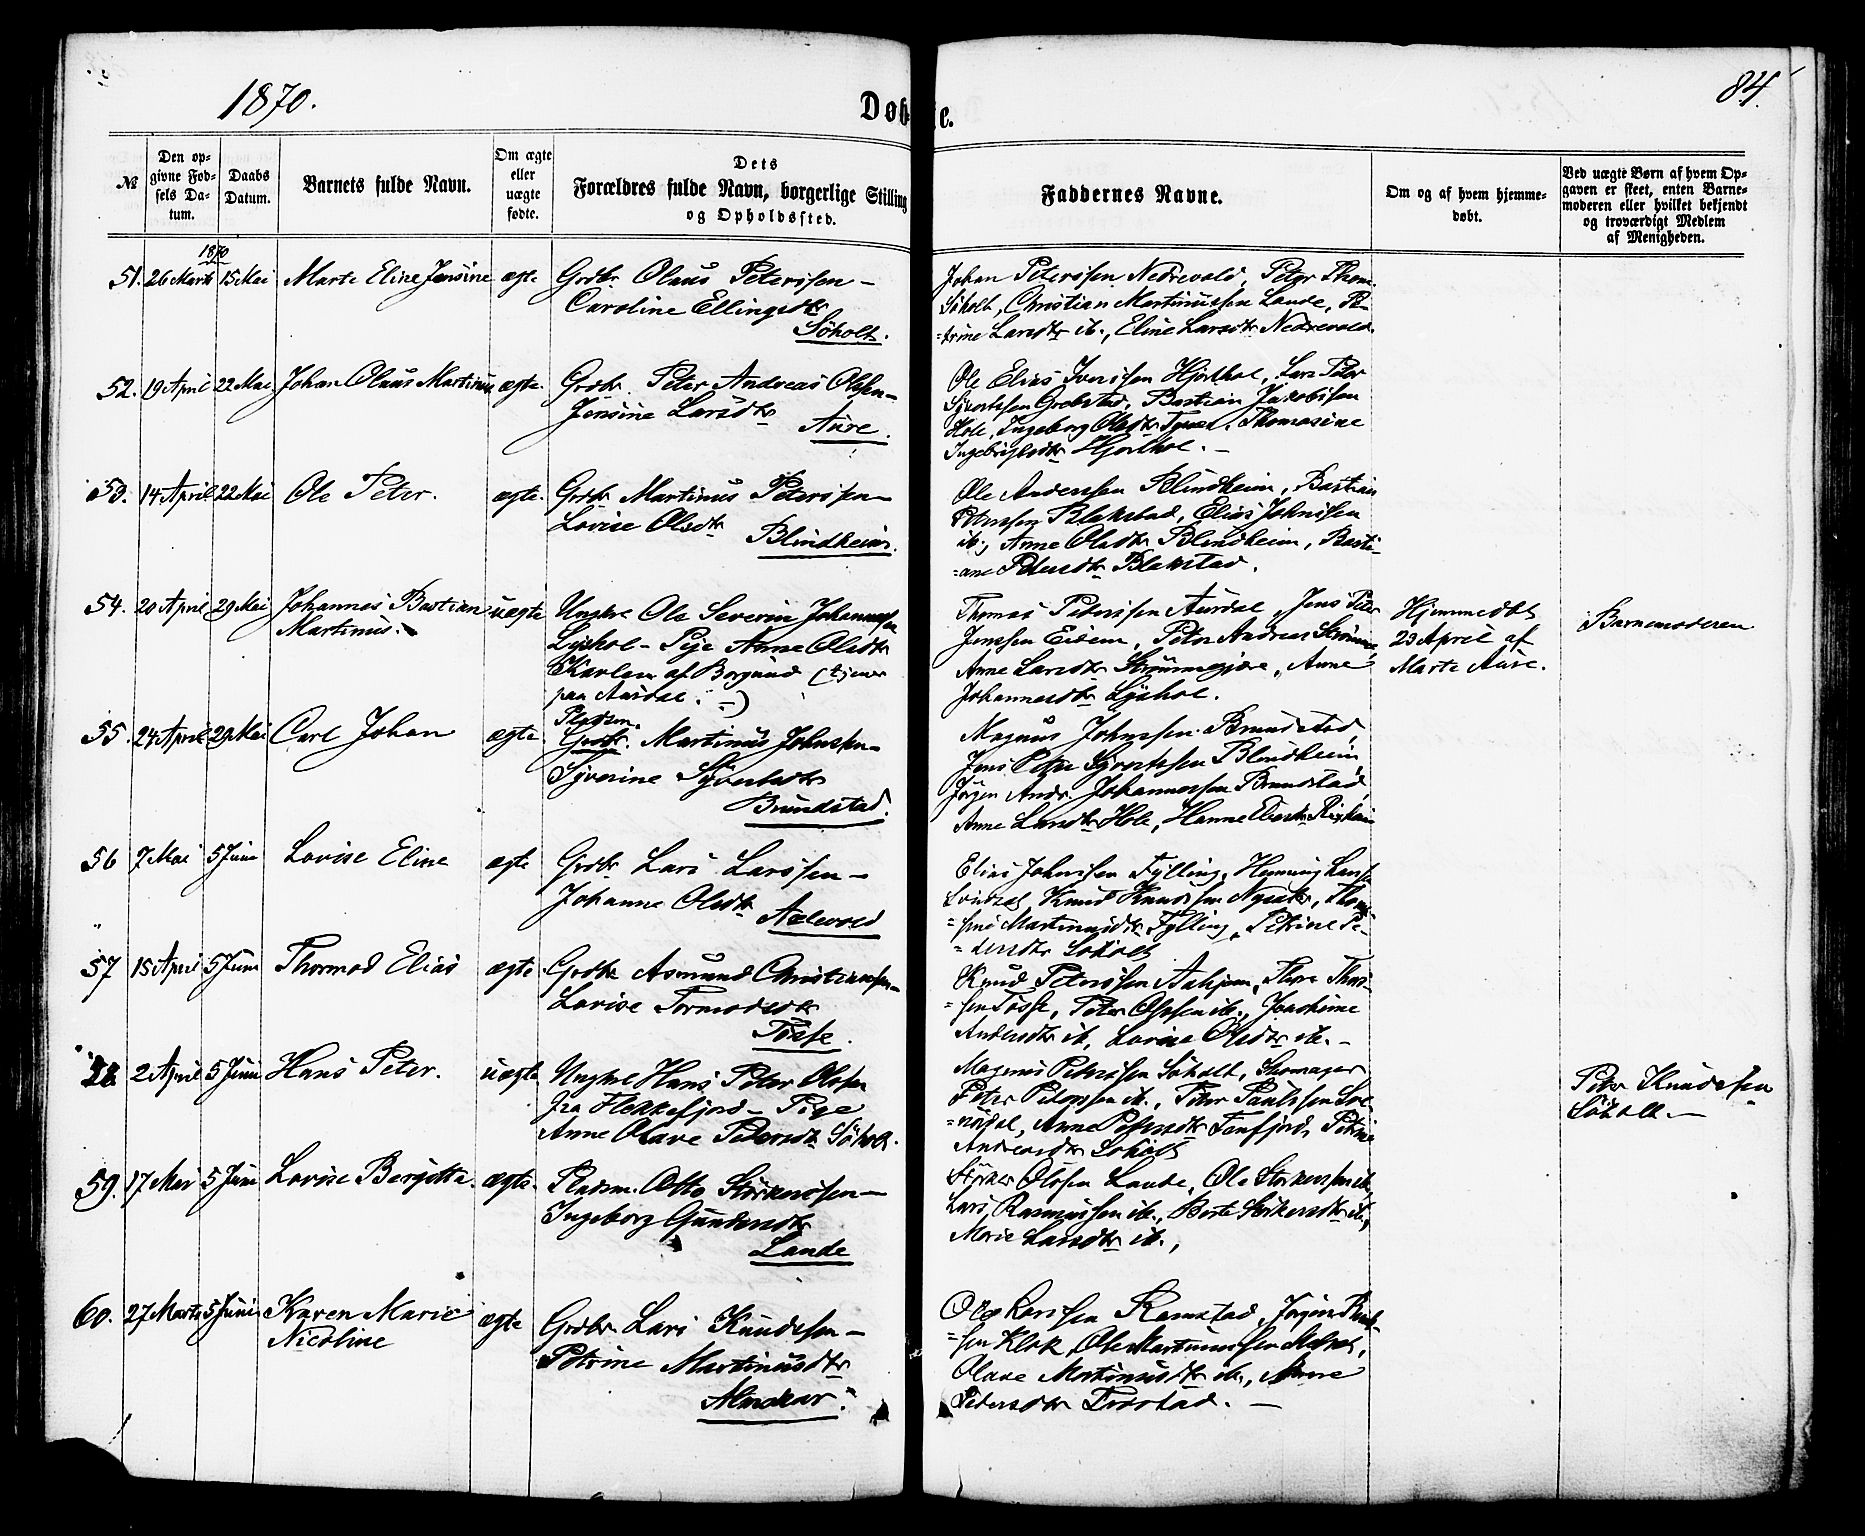 1870.
84.
Døb
e.
№
Den op-
givne Fød-
sels Da-
tum.
Daabs
Datum.
Barnets fulde Navn.
Om ægte
eller
uægte
fødte.
Dets
Forældres fulde Navn, borgerlige Stilling
og Opholdssted.
Faddernes Navne.
Om og af hvem hjemme-
døbt.
Ved uægte Børn af hvem Op-
gaven er skeet, enten Barne-
moderen eller hvilket bekjendt
og troværdigt Medlem
af Menigheden.
1870
51. 26 Marts 15 Mai Marte Eline Jensine ægte Grdbr Olaus Peterssen –
Caroline Ellingsdtr
Søholt.
Johan Peterssen Nedrevold, Peter Thom.
Søholt, Christian Martinussen Lande, Pe-
=trine Larsdtr ib., Eline Larsdtr Nedrevold.
52. 19 April 22 Mai Johan Olaus Martinus ægte. Grdbr. Peter Andreas Olssen –
Jensine Larsdtr
Aure.
Ole Elias Iverssen Hjorthol, Lars Peter
Syvertssen Grebstad, Bastian Jacobssen
Hole, Ingeborg Olsdtr Thomasine
Ingebrigtsdtr Hjorthol. –
53. 14 April 22 Mai Ole Peter. ægte. Grdbr Martinus Peterssen –
Lovise Olsdtr
Blindheim.
Ole Anderssen Blindheim, Bastian
Peterssen Blakstad, Elias Johnssen
ib., Anne Olsdtr Blindheim, Basti-
=ane Pedersdtr Blakstad.
54. 20 April 29 Mai Johannes Bastian
Martinus. uægte Ungkrl Ole Severin Johannessen
Lyshol – Pige Anne Olsdtr
af Borgund (tjener
paa Aurdal. –)
Thomas Peterssen Aurdal, Jens Peter
Jenssen Eidem, Peter Andreas Strømme,
Anne Larsdtr Strømmegjære, Anne
Johannesdtr Lyshol.
Hjemmedøbt
23 April af
Marte Aure.
Barnemoderen
55. 24 April 29 Mai Carl Johan ægte. Pladsm.
Grdbr. Martinus Johnssen –
Syverine Syvertsdtr
Brundstad.
Magnus Johnssen Brundstad,
Jens Peter Syvertssen Blindheim,
Jørgen Andr. Johannessen Brundstad,
Anne Larsdtr Hole, Hanne Eliasdtr
56 7 Mai 5 Juni Lovise Eline ægte Grdbr Lars Larssen –
Johanne Olsdtr
Aalevold
Elias Johnssen Fylling, Henning
Knud Knudssen
=sine Martinusdtr Fylling, Petrine Pe-
=dersdtr Søholt
57 15 April 5 Juni Thormod Elias ægte Grdbr Asmund Christianssen –
Lovise Tormodsdtr
Tøsse.
Knud Peterssen Thore Thors-
=sen Tøsse, Peter Olssen ib., Joachime
Andersdtr ib, Lovise Olsdtr ib. –
58. 2 April 5 Juni Hans Peter. uægte Ungkrl Hans Peter Olssen
fra – Pige
Anne Olave Pedersdtr Søholt.
Magnus Peterssen Søholt, Skomager
Peter Peterssen ib., Peter Paulssen
Anne Petersdtr Petrine
Andreasdtr Søholt
Peter Knudssen
Søholt. –
59. 17 Mai 5 Juni Lovise Bergitta. ægte. Pladsm. Otto Størkerssen –
Ingeborg Gundersdtr
Lande
Størker Olssen Lande, Ole Størkerssen ib.,
Lars Rasmussen ib., Berte Størkersdtr ib.,
Marie Larsdtr ib.,
60. 27 Marts 5 Juni Karen Marie
Nicoline ægte Grdbr Lars Knudssen –
Petrine Martinusdtr
Almskar.
Ole Larssen Ramstad, Jørgen
=sen Klok, Ole Martinussen
Olave Martinusdtr ib., Anne
Pedersdtr Trostad. –